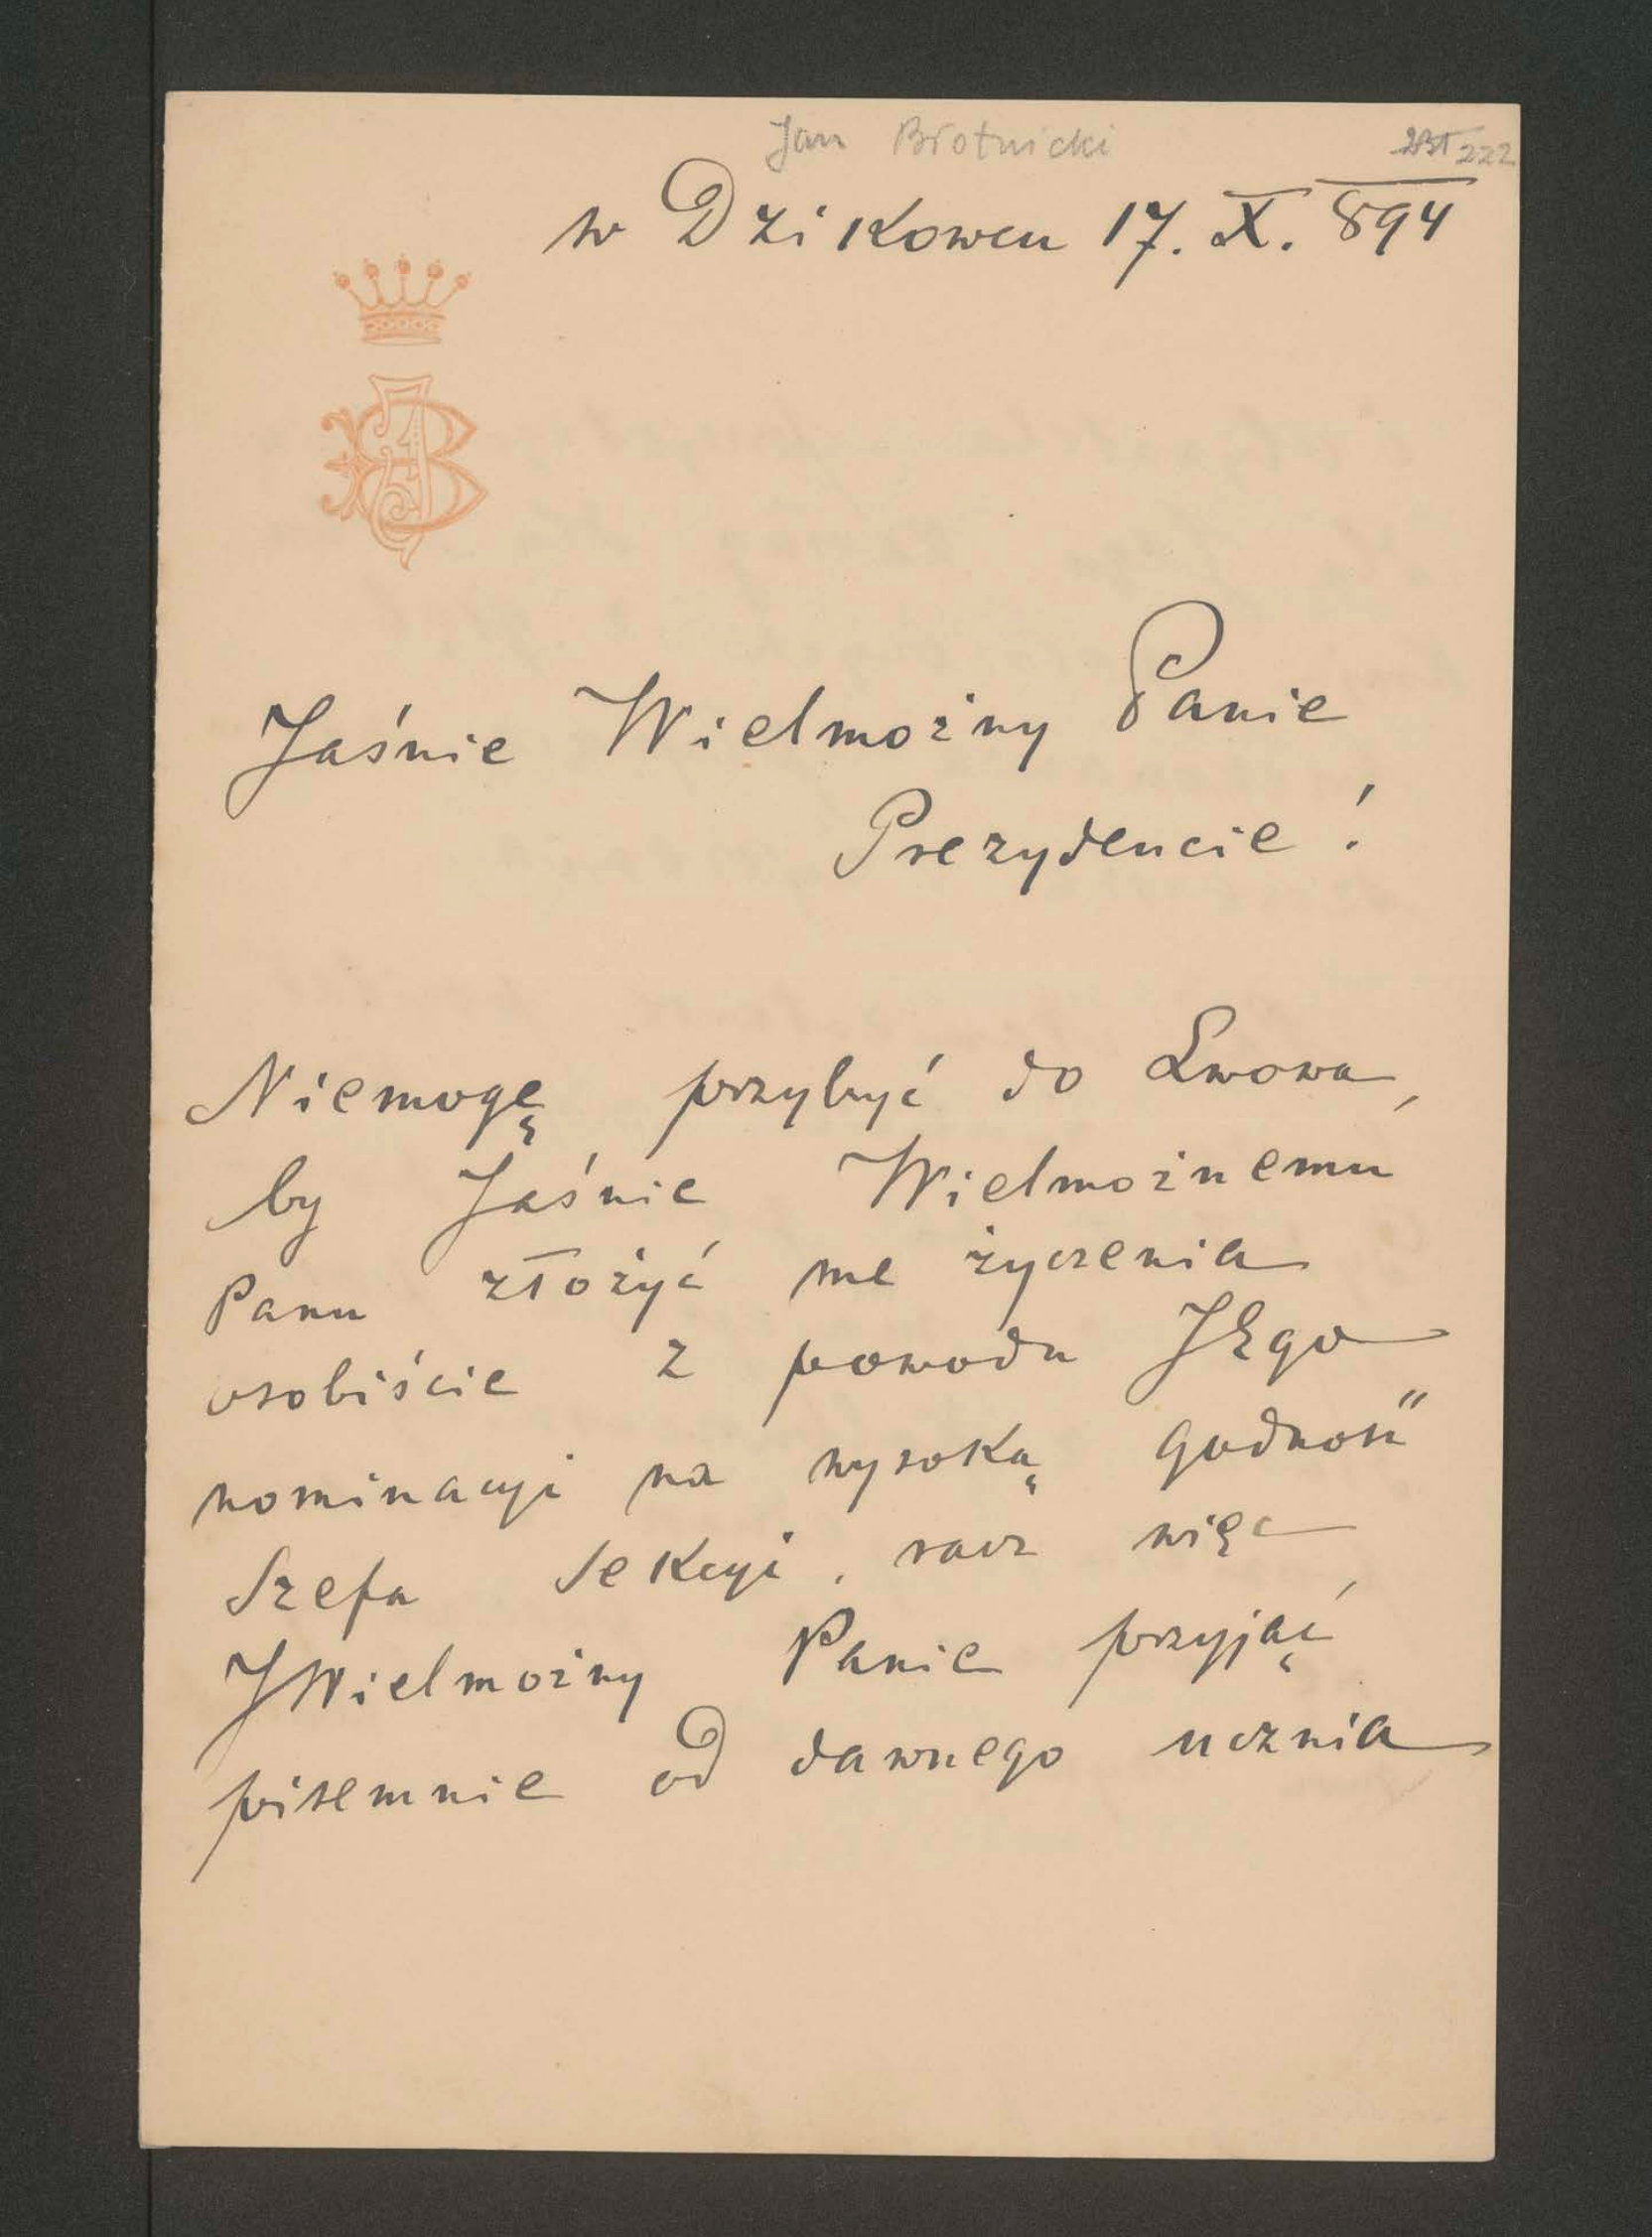 Jan Błotnicki
222
w Dzikowcu 17. X. 894
Jaśnie Wielmożny Panie
Prezydencie!
Niemogę przybyć do Lwowa,
by Jaśnie Wielmożnemu
Panu złożyć me życzenia
osobiście z powodu JEgo
nominacyi na wysoką godność
Szefa Sekcyi, racz więc
JWielmożny Panie przyjąć
pisemnie od dawnego ucznia